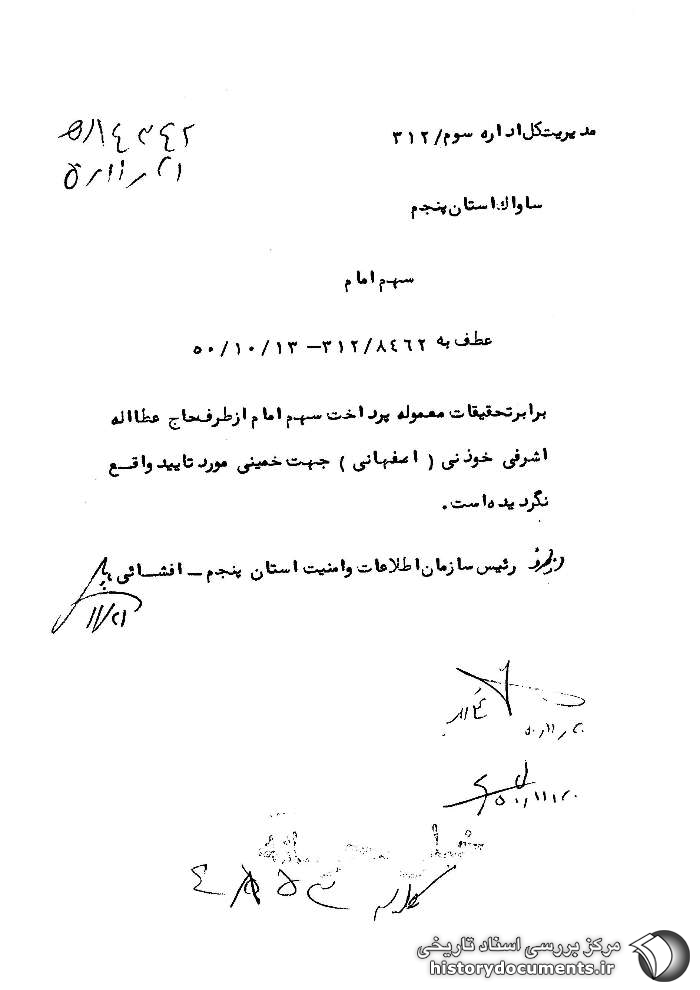 مدیریت کل اداره سوم/ ۳۱۲
۲۱ر۱۱ر۵
ساواک استان پنجم
سهم امام
عطف به ۳۱۲/۸٤٦۲ – ۵۰/۱۰/۱۳
برابر تحقیقات معموله پرداخت سهم امام از طرف حاج عطااله
اشرفی خوذنی ( اصفهانی ) جهت خمینی مورد تایید واقع
نگردیده است .
رئیس سازمان اطلاعات و امنیت استان پنجم – افشائی
۱۱/۲۱
۵۰ر۱۱ر۲۰
۵۰ر۱۱ر۲۰
مرکز بررسی اسناد تاریخی
historydocuments.ir